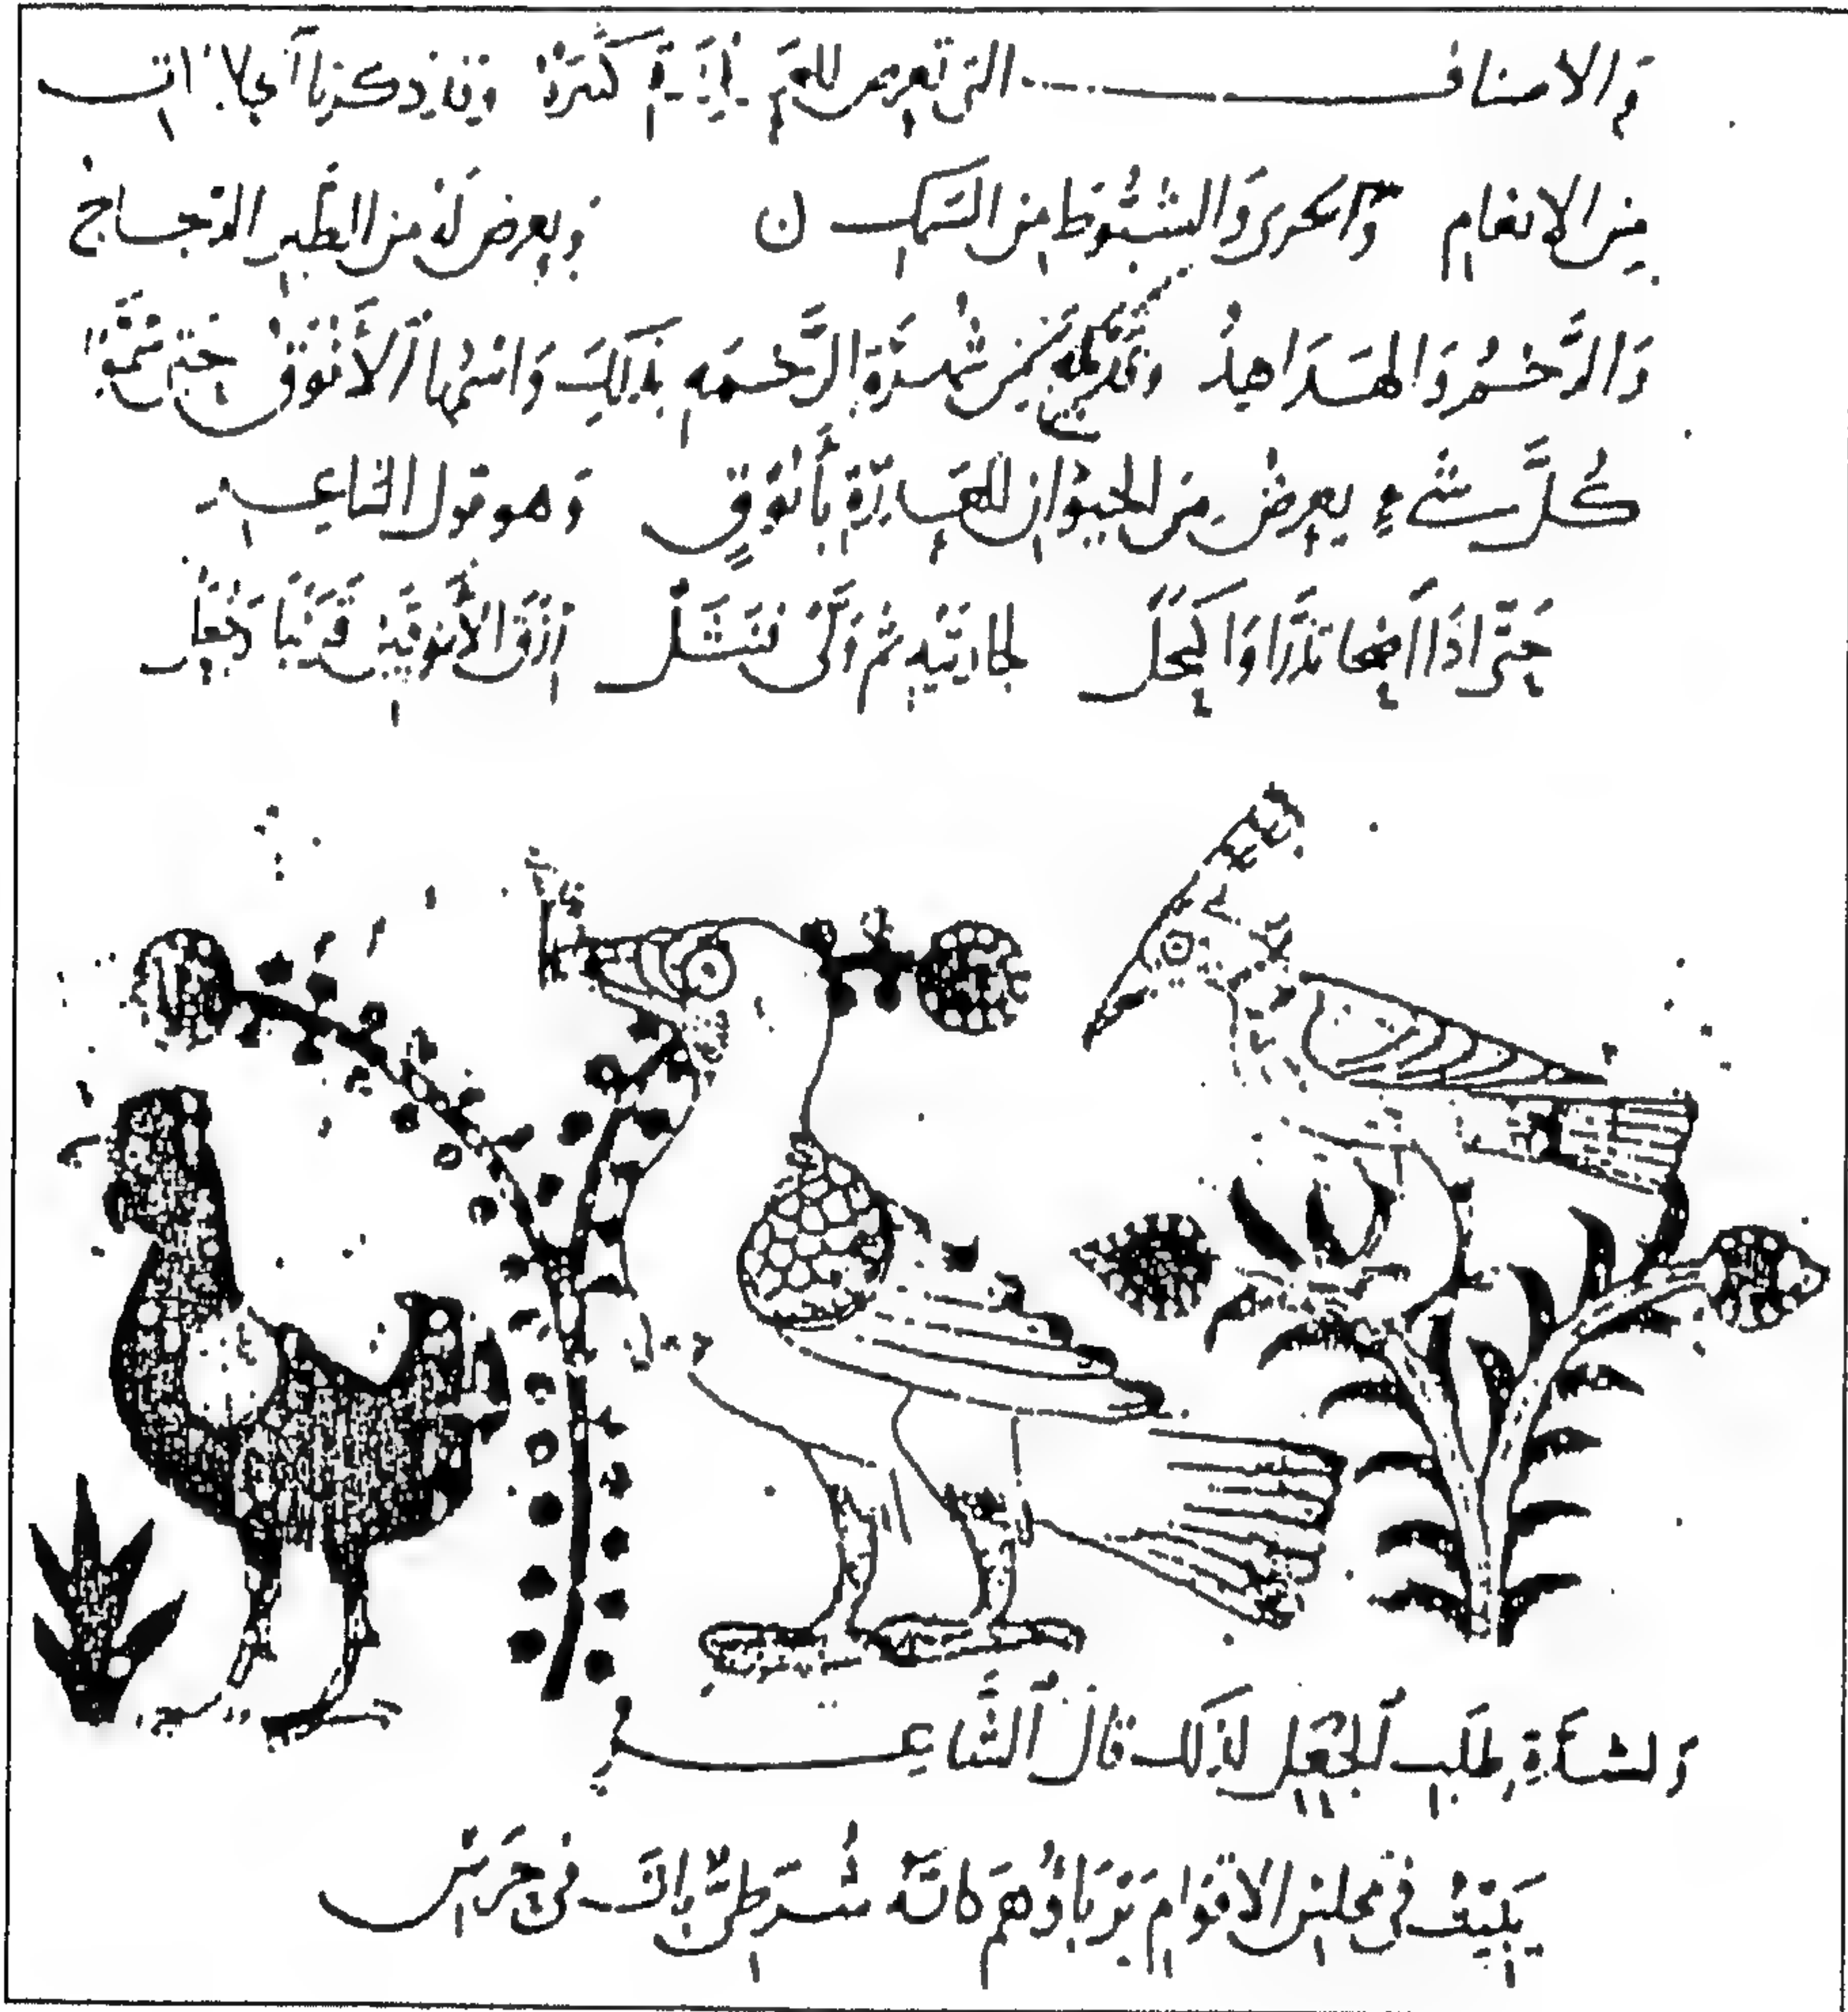 والاصناف التي تعرض للعذرة كثيرة وقد ذكرنا الجلالات
من الانعام والجري والشبوط من السمك ويعرض له من الطير الدجاج
والرخم والهداهد وقد بلغ من شهوة الرخمه لذلك واسمها الأنوق حتى سموا
كل شيء يعرض من الحيوان للعذرة بأنوق وهو قول الشاعر
حتى اذا اضحى تدرا واكتحل لجارتيه ثم ولى فنثل رزق الأنوقين
ولشدة طلب الجعل لذلك قال الشاعر
يبيت في مجلس الاقوام يربأوهم كانه شرطي بات في حرس